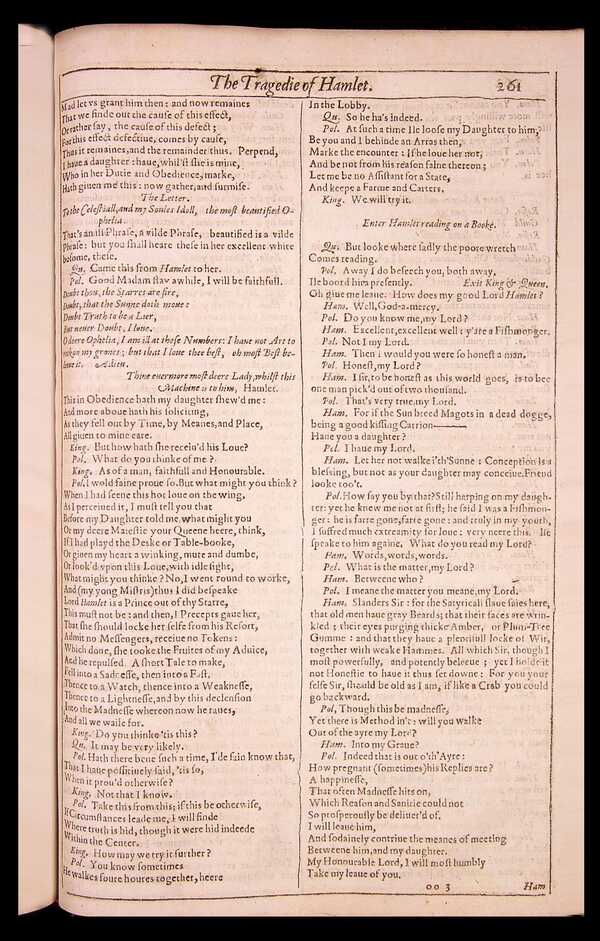 The Tragedie of Hamlet.
261
Mad let vs grant him then: and now remaines
That we finde out the cause of this effect,
Or rather say, the cause of this defect;
For this effect defectiue, comes by cause,
Thus it remaines, and the remainder thus. Perpend,
I haue a daughter: haue, whil'st she is mine,
Who in her Dutie and Obedience, marke,
Hath giuen me this: now gather, and surmise.
The Letter.
To the Celestiall, and my Soules Idoll, the most beautified O-
phelia.
That's an ill Phrase, a vilde Phrase, beautified is a vilde
Phrase: but you shall heare these in her excellent white
bosome, these.
Qu. Came this from Hamlet to her.
Pol. Good Madam stay awhile, I will be faithfull.
Doubt thou, the Starres are fire,
Doubt, that the Sunne doth moue:
Doubt Truth to be a Lier,
But neuer Doubt, I loue.
O deere Ophelia, I am ill at these Numbers: I haue not Art to
reckon my grones; but that I loue thee best, oh most Best be-
leeue it. Adieu.
Thine euermore most deere Lady, whilst this
Machine is to him, Hamlet.
This in Obedience hath my daughter shew'd me:
And more aboue hath his soliciting,
As they fell out by Time, by Meanes, and Place,
All giuen to mine eare.
King. But how hath she receiu'd his Loue?
Pol. What do you thinke of me?
King. As of a man, faithfull and Honourable.
Pol. I wold faine proue so. But what might you think?
When I had seene this hot loue on the wing,
As I perceiued it, I must tell you that
Before my Daughter told me, what might you
Or my deere Maiestie your Queene heere, think,
If I had playd the Deske or Table-booke,
Or giuen my heart a winking, mute and dumbe,
Or look'd vpon this Loue, with idle sight,
What might you thinke? No, I went round to worke,
And (my yong Mistris) thus I did bespeake
Lord Hamlet is a Prince out of thy Starre,
This must not be: and then, I Precepts gaue her,
That she should locke her selfe from his Resort,
Admit no Messengers, receiue no Tokens:
Which done, she tooke the Fruites of my Aduice,
And he repulsed. A short Tale to make,
Fell into a Sadnesse, then into a Fast,
Thence to a Watch, thence into a Weaknesse,
Thence to a Lightnesse, and by this declension
Into the Madnesse whereon now he raues,
And all we waile for.
King. Do you thinke 'tis this?
Qu. It may be very likely.
Pol. Hath there bene such a time, I'de fain know that,
That I haue possitiuely said, 'tis so,
When it prou'd otherwise?
King. Not that I know.
Pol. Take this from this; if this be otherwise,
If Circumstances leade me, I will finde
Where truth is hid, though it were hid indeede
Within the Center.
King. How may we try it further?
Pol. You know sometimes
He walkes foure houres together, heere
In the Lobby.
Qu. So he ha's indeed.
Pol. At such a time Ile loose my Daughter to him,
Be you and I behinde an Arras then,
Marke the encounter: If he loue her not,
And be not from his reason falne thereon;
Let me be no Assistant for a State,
And keepe a Farme and Carters.
King. We will try it.
Enter Hamlet reading on a Booke.
Qu. But looke where sadly the poore wretch
Comes reading.
Pol. Away I do beseech you, both away,
Ile boord him presently. Exit King & Queen.
Oh giue me leaue. How does my good Lord Hamlet?
Ham. Well, God-a-mercy.
Pol. Do you know me, my Lord?
Ham. Excellent, excellent well: y'are a Fishmonger.
Pol. Not I my Lord.
Ham. Then I would you were so honest a man.
Pol. Honest, my Lord?
Ham. I sir, to be honest as this world goes, is to bee
one man pick'd out of two thousand.
Pol. That's very true, my Lord.
Ham. For if the Sun breed Magots in a dead dogge,
being a good kissing Carrion———
Haue you a daughter?
Pol. I haue my Lord.
Ham. Let her not walke i'th'Sunne: Conception is a
blessing, but not as your daughter may conceiue. Friend
looke too't.
Pol. How say you by that? Still harping on my daugh-
ter: yet he knew me not at first; he said I was a Fishmon-
ger: he is farre gone, farre gone: and truly in my youth,
I suffred much extreamity for loue: very neere this. Ile
speake to him againe. What do you read my Lord?
Ham. Words, words, words.
Pol. What is the matter, my Lord?
Ham. Betweene who?
Pol. I meane the matter you meane, my Lord.
Ham. Slanders Sir: for the Satyricall slaue saies here,
that old men haue gray Beards; that their faces are wrin-
kled; their eyes purging thicke Amber, or Plum-Tree
Gumme: and that they haue a plentifull locke of Wit,
together with weake Hammes. All which Sir, though I
most powerfully, and potently beleeue; yet I holde it
not Honestie to haue it thus set downe: For you your
selfe Sir, should be old as I am, if like a Crab you could
go backward.
Pol. Though this be madnesse,
Yet there is Method in't: will you walke
Out of the ayre my Lord?
Ham. Into my Graue?
Pol. Indeed that is out o'th'Ayre:
How pregnant (sometimes) his Replies are?
A happinesse,
That often Madnesse hits on,
Which Reason and Sanitie could not
So prosperously be deliuer'd of.
I will leaue him,
And sodainely contriue the meanes of meeting
Betweene him, and my daughter.
My Honourable Lord, I will most humbly
Take my leaue of you.
oo 3
Ham